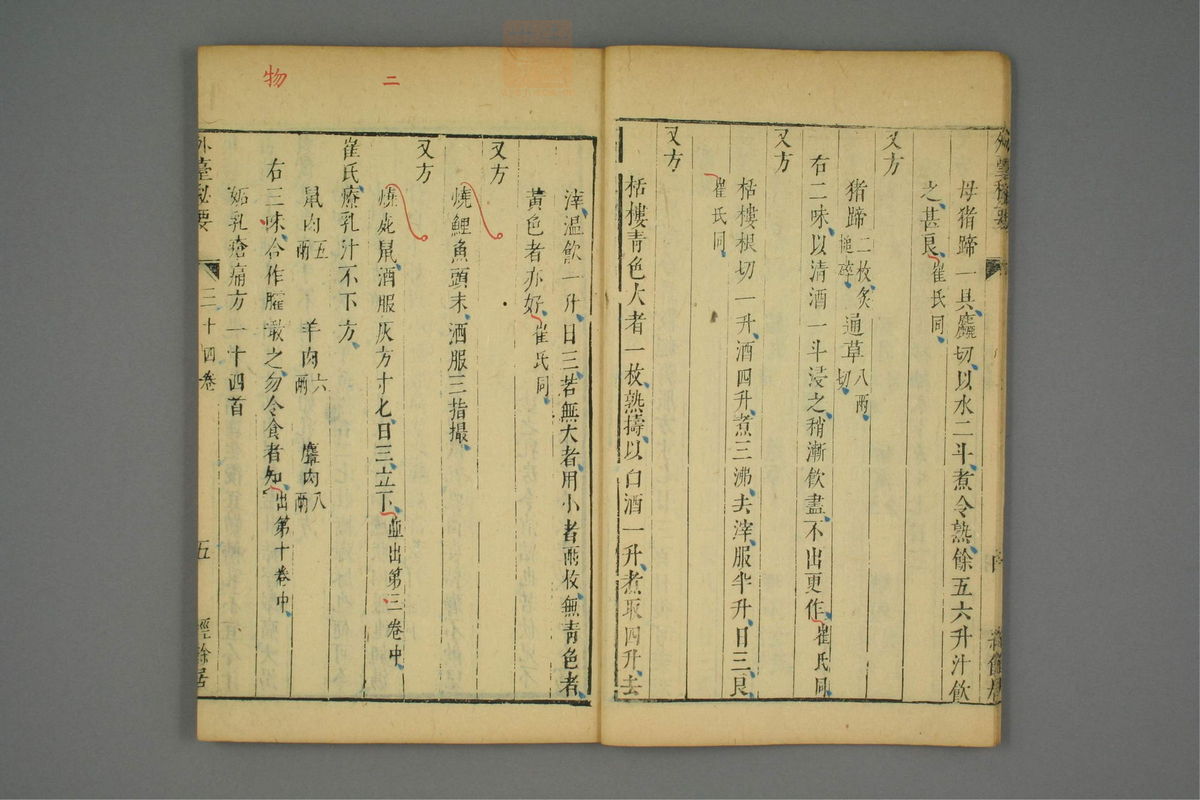 母猪蹄一具麤切以水二斗煮令熟餘五六升汁飲
之甚良崔氏同
又方
猪蹄二枚炙搥碎 通草八兩切
右二味以清酒一斗浸之稍漸飲盡不出更作崔氏同
又方
栝樓根切一升酒四升煮三沸去滓服半升日三良
崔氏同
又方
栝樓青色大者一枚熟擣以白酒一升煮取四升去
滓溫飲一升日三若無大者用小者兩枚無青色者
黃色者亦好崔氏同
又方
燒鯉魚頭末酒服三指撮
又方
燒死鼠酒服灰方寸匕日三立下並出第三卷中
崔氏療乳汁不下方
鼠肉五兩 羊肉六兩 麞肉八兩
右三味合作臛噉之勿令食者知出第十卷中
妬乳瘡痛方一十四首
外臺秘要 三十四卷 五 經餘居
二
物